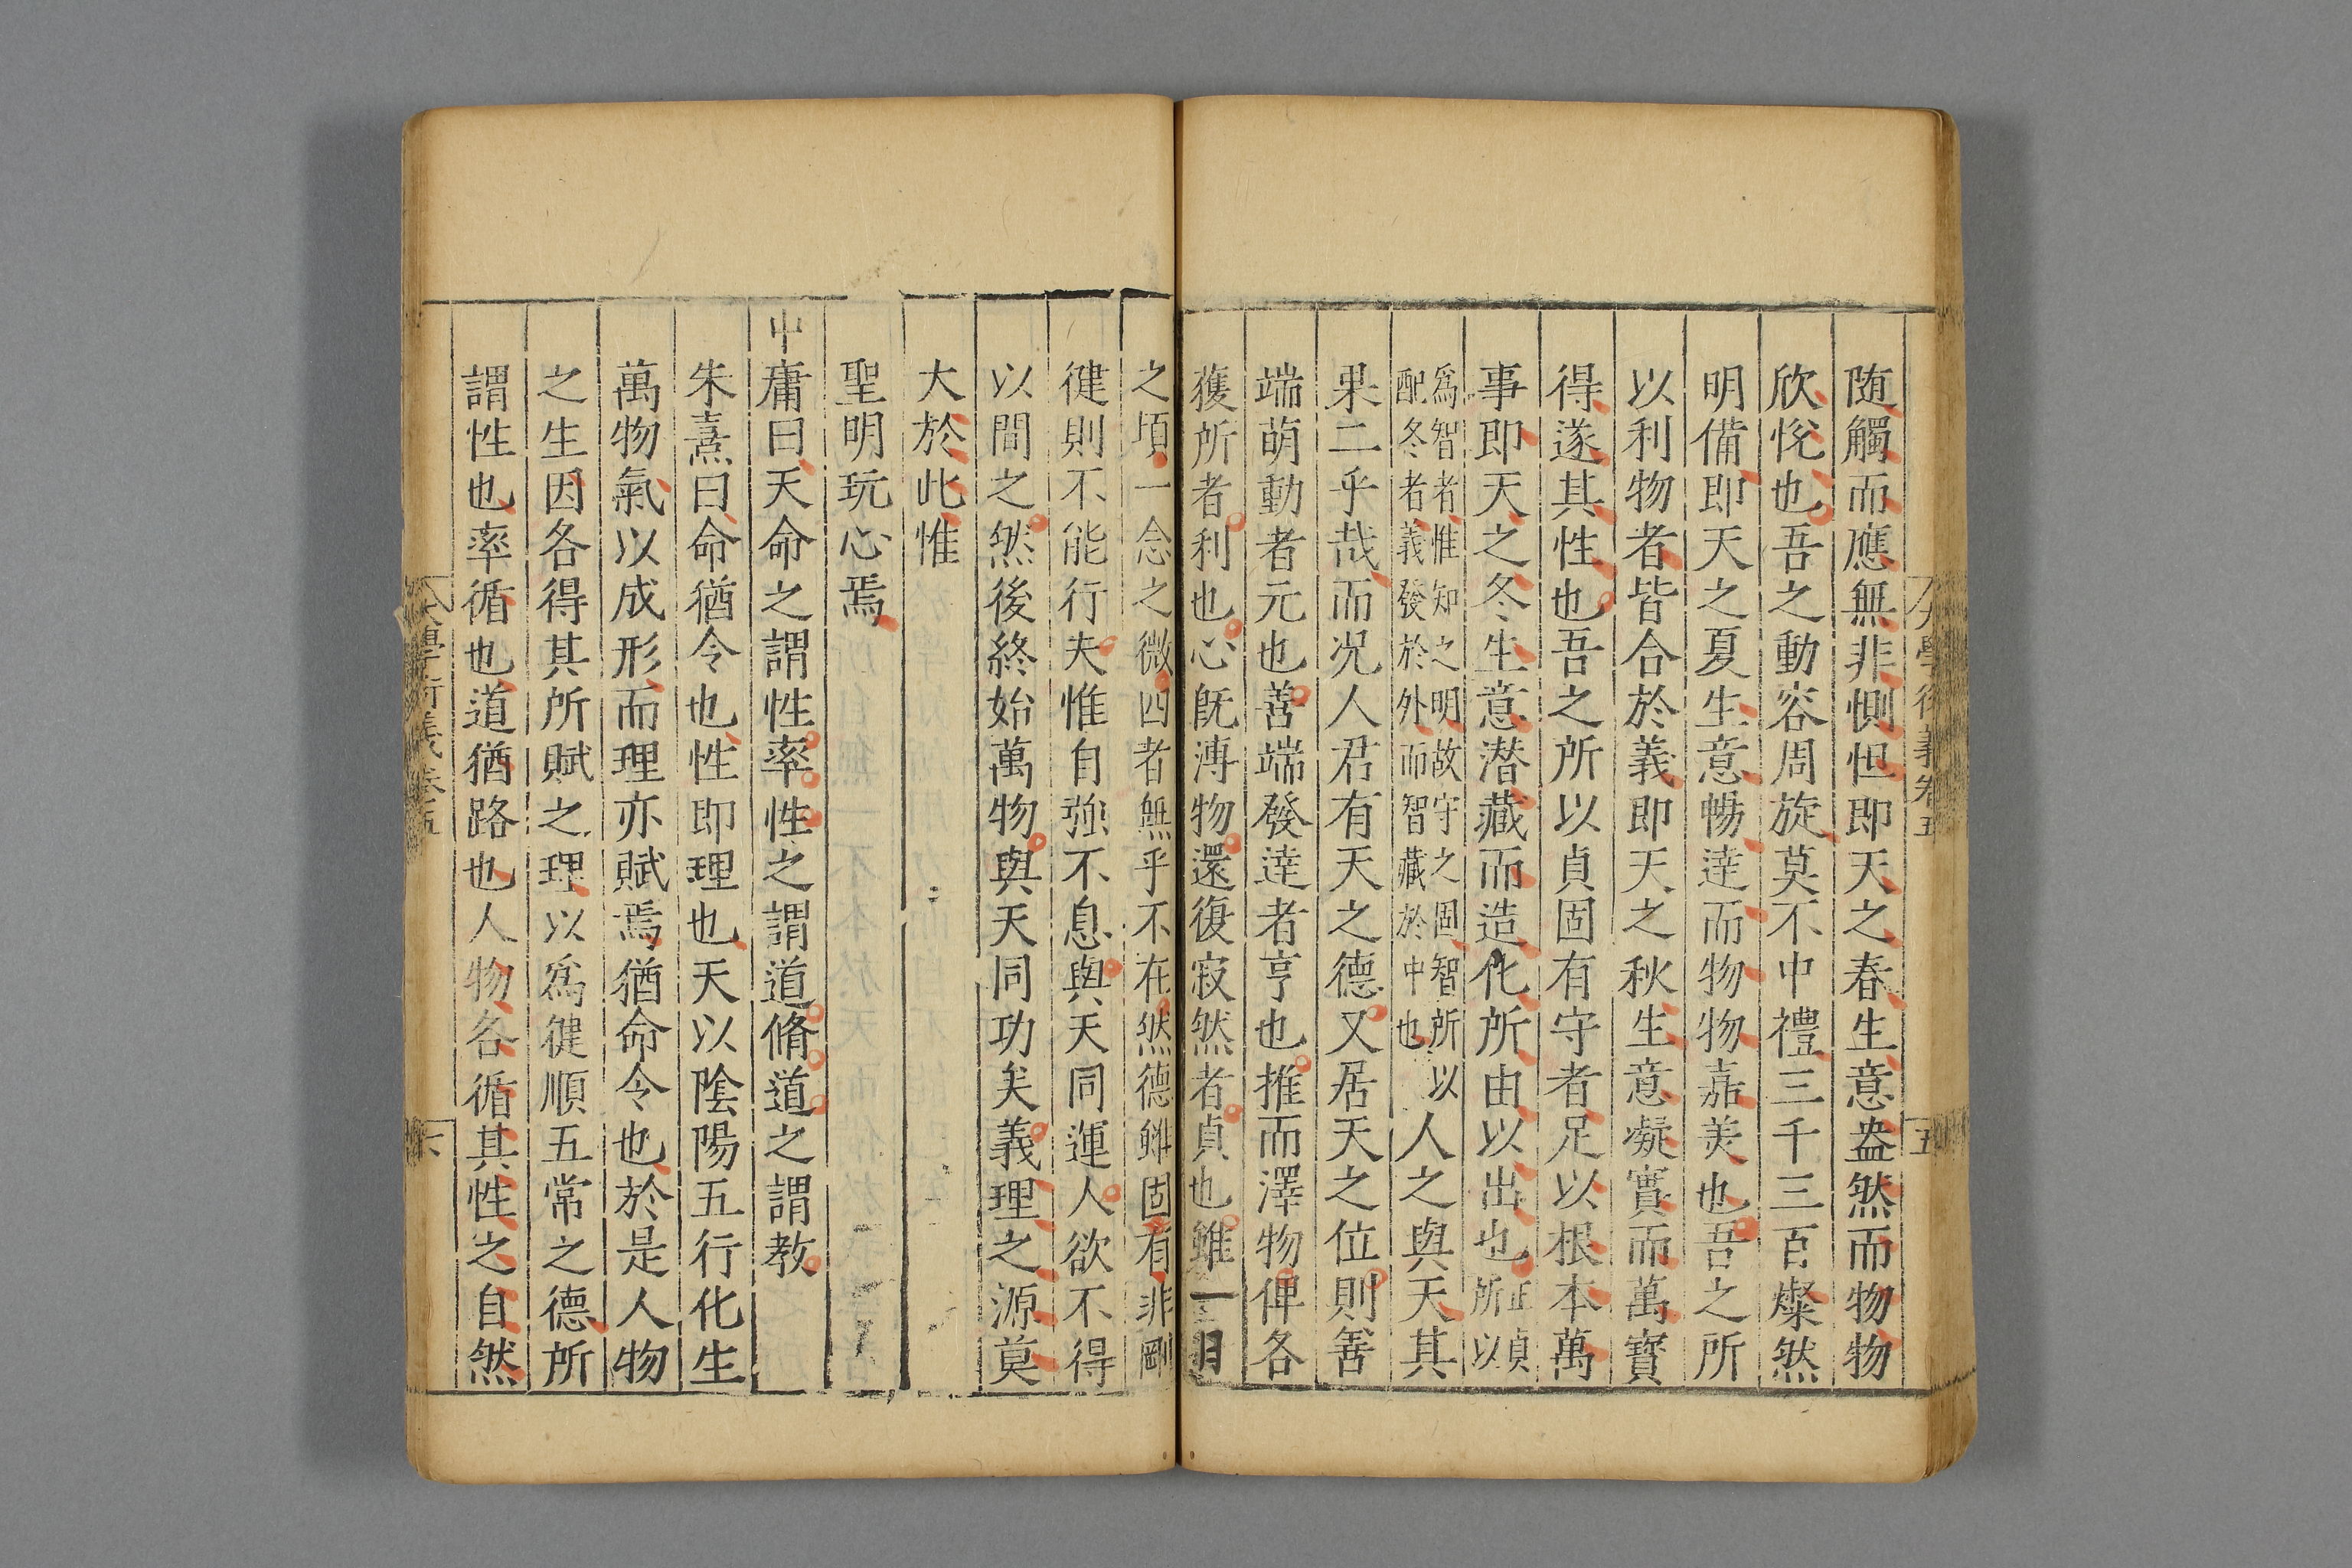 大學衍義卷五
五
随觸而應無非惻怛即天之春生意盎然而物物
欣恱也吾之動容周旋莫不中禮三千三百燦然
明備即天之夏生意暢逹而物物嘉美也吾之所
以利物者皆合於義即天之秋生意凝實而萬寳
得遂其性也吾之所以貞固有守者足以根本萬
事即天之冬生意潜藏而造化所由以出也正貞
所以
爲智者惟知之明故守之固智所以
配冬者義發於外而智藏於中也
人之與天其
果二乎哉而况人君有天之德又居天之位則善
端萌動者元也善端發逹者亨也推而澤物俾各
獲所者利也心旣溥物還復寂然者貞也雖一日
之頃一念之微四者無乎不在然德雖固有非剛
健則不能行夫惟自強不息與天同運人欲不得
以間之然後終始萬物與天同功矣義理之源莫
大於此惟
聖明玩心焉
中庸曰天命之謂性率性之謂道脩道之謂教
朱熹曰命猶令也性即理也天以陰陽五行化生
萬物氣以成形而理亦賦焉猶命令也於是人物
之生因各得其所賦之理以爲健順五常之德所
謂性也率循也道猶路也人物各循其性之自然
大學衍義卷五
六